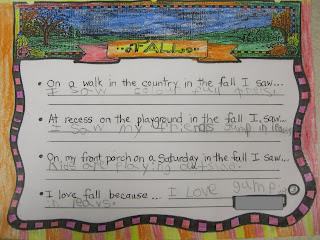 FALL
On a walk in the country in the fall I saw...
I saw
At recess on the playground in the fall I saw...
I saw my friends gump in leavs
On my front porch on a Saturday in the fall I saw...
Kids are playing outside.
I love fall because... I Love gump
in leavs.